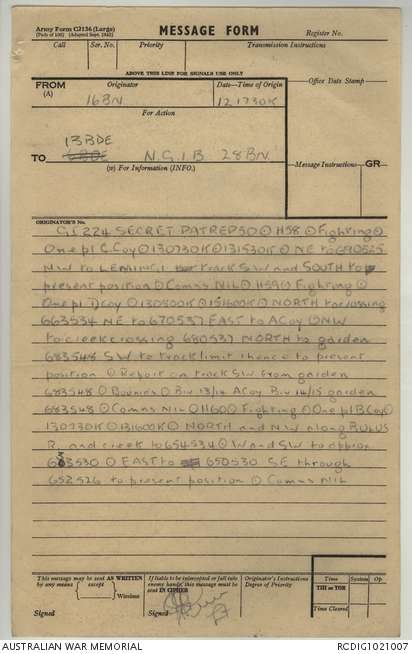 Army Form C2136 (Large)
(Pads of 100) (Adapted Sept. 1942)
MESSAGE FORM
Register No.
Call
Ser. No.
Priority
Transmission Instructions
ABOVE THIS LINE FOR SIGNALS USE ONLY
FROM
(A)
Originator
Date—Time of Origin
Office Date Stamp
16BN
121730K
For Action
13BDE
TO
N.G.I.B. 28BN
(W) For Information (INFO.)
Message Instructions
GR
ORIGINATOR'S No.
GI 224 SECRET PATREP 50 ⊙ H58 ⊙ Fighting ⊙
One pl C Coy ⊙ 130730K ⊙ 131530K ⊙ NE to 690525
NW to LEMING I track SW and SOUTH to
present position ⊙ Comns NIL ⊙ H59 ⊙ Fighting ⊙
One pl D Coy ⊙ 130800K ⊙ 151600K ⊙ NORTH to crossing
663534 NE to 670537 EAST to A Coy ⊙ NW
to creek crossing 680537 NORTH to garden
683548 SW to track limit thence to present
position ⊙ Report on track SW from garden
683548 ⊙ Bounds ⊙ Biv 13/14 A Coy Biv 14/15 garden
683548 ⊙ Comns NIL ⊙ 1160 ⊙ Fighting ⊙ One pl B Coy ⊙
130730K ⊙ 131600K ⊙ NORTH and NW along RUFUS
R. and creek to 654534 ⊙ W and SW to approx
530 ⊙ EAST to 650530 SE through
652526 to present position ⊙ Comns NIL
This message may be sent AS WRITTEN
by any means
except
Wireless
Signed
If liable to be intercepted or fall into
enemy hands, this message must
be sent IN CIPHER
Signed
Originator's Instructions
Degree of Priority
Time
System
Op
THI or TOR
Time Cleared
AUSTRALIAN WAR MEMORIAL
RCDIG1021007